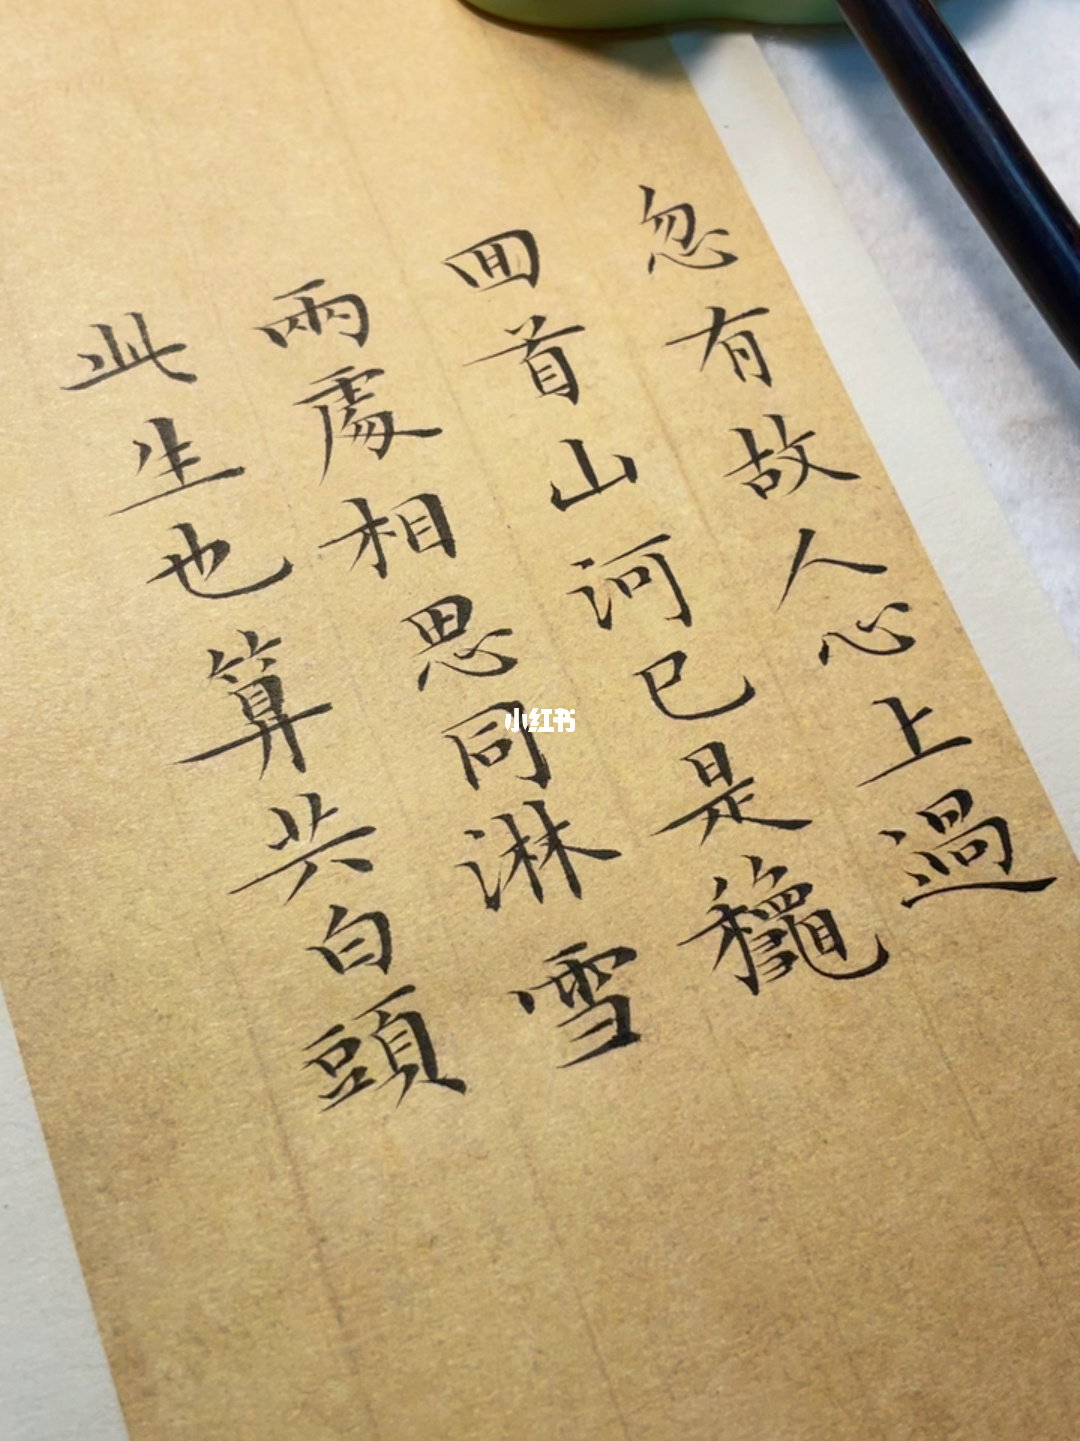 忽有故人心上過
回首山河已是龝
兩處相思同淋雪
此生也算共白頭
小红书